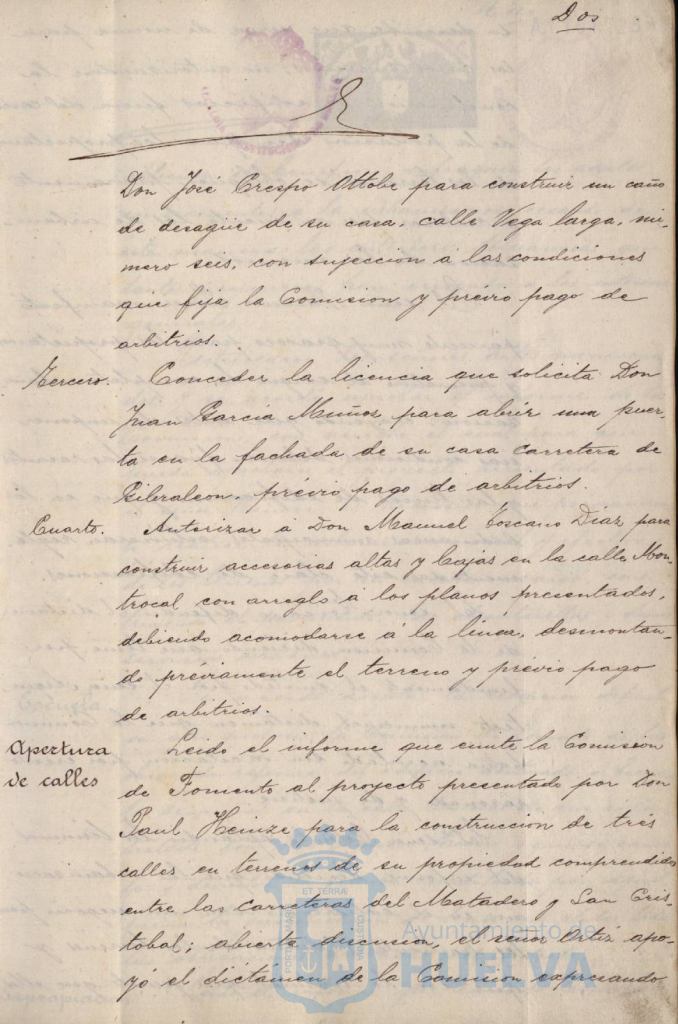 Dos
Don José Crespo Ottobe para construir un caño
de desagüe de su casa, calle Vega larga, nú-
mero seis, con sujeccion á las condiciones
que fija la Comision y prévio pago de
arbitrios.
Tercero. Conceder la licencia que solicita Don
Juan Garcia Muñoz para abrir una puer-
ta en la fachada de su casa carretera de
Gibraleon, prévio pago de arbitrios.
Cuarto. Autorizar á Don Manuel Toscano Diaz para
construir accesorias altas y bajas en la calle Mon-
trocal con arreglo á los planos presentados,
debiendo acomodarse á la línea, desmontan-
do préviamente el terreno y prévio pago
de arbitrios.
Apertura
de calles
Leido el informe que emite la Comision
de Fomento al proyecto presentado por Don
Paul Heinze para la construccion de tres
calles en terrenos de su propiedad comprendidos
entre las carreteras del Matadero y San Cris-
tobal; abierta discusion, el señor Ortiz apo-
yó el dictámen de la Comision expresando
Ayuntamiento de
HUELVA